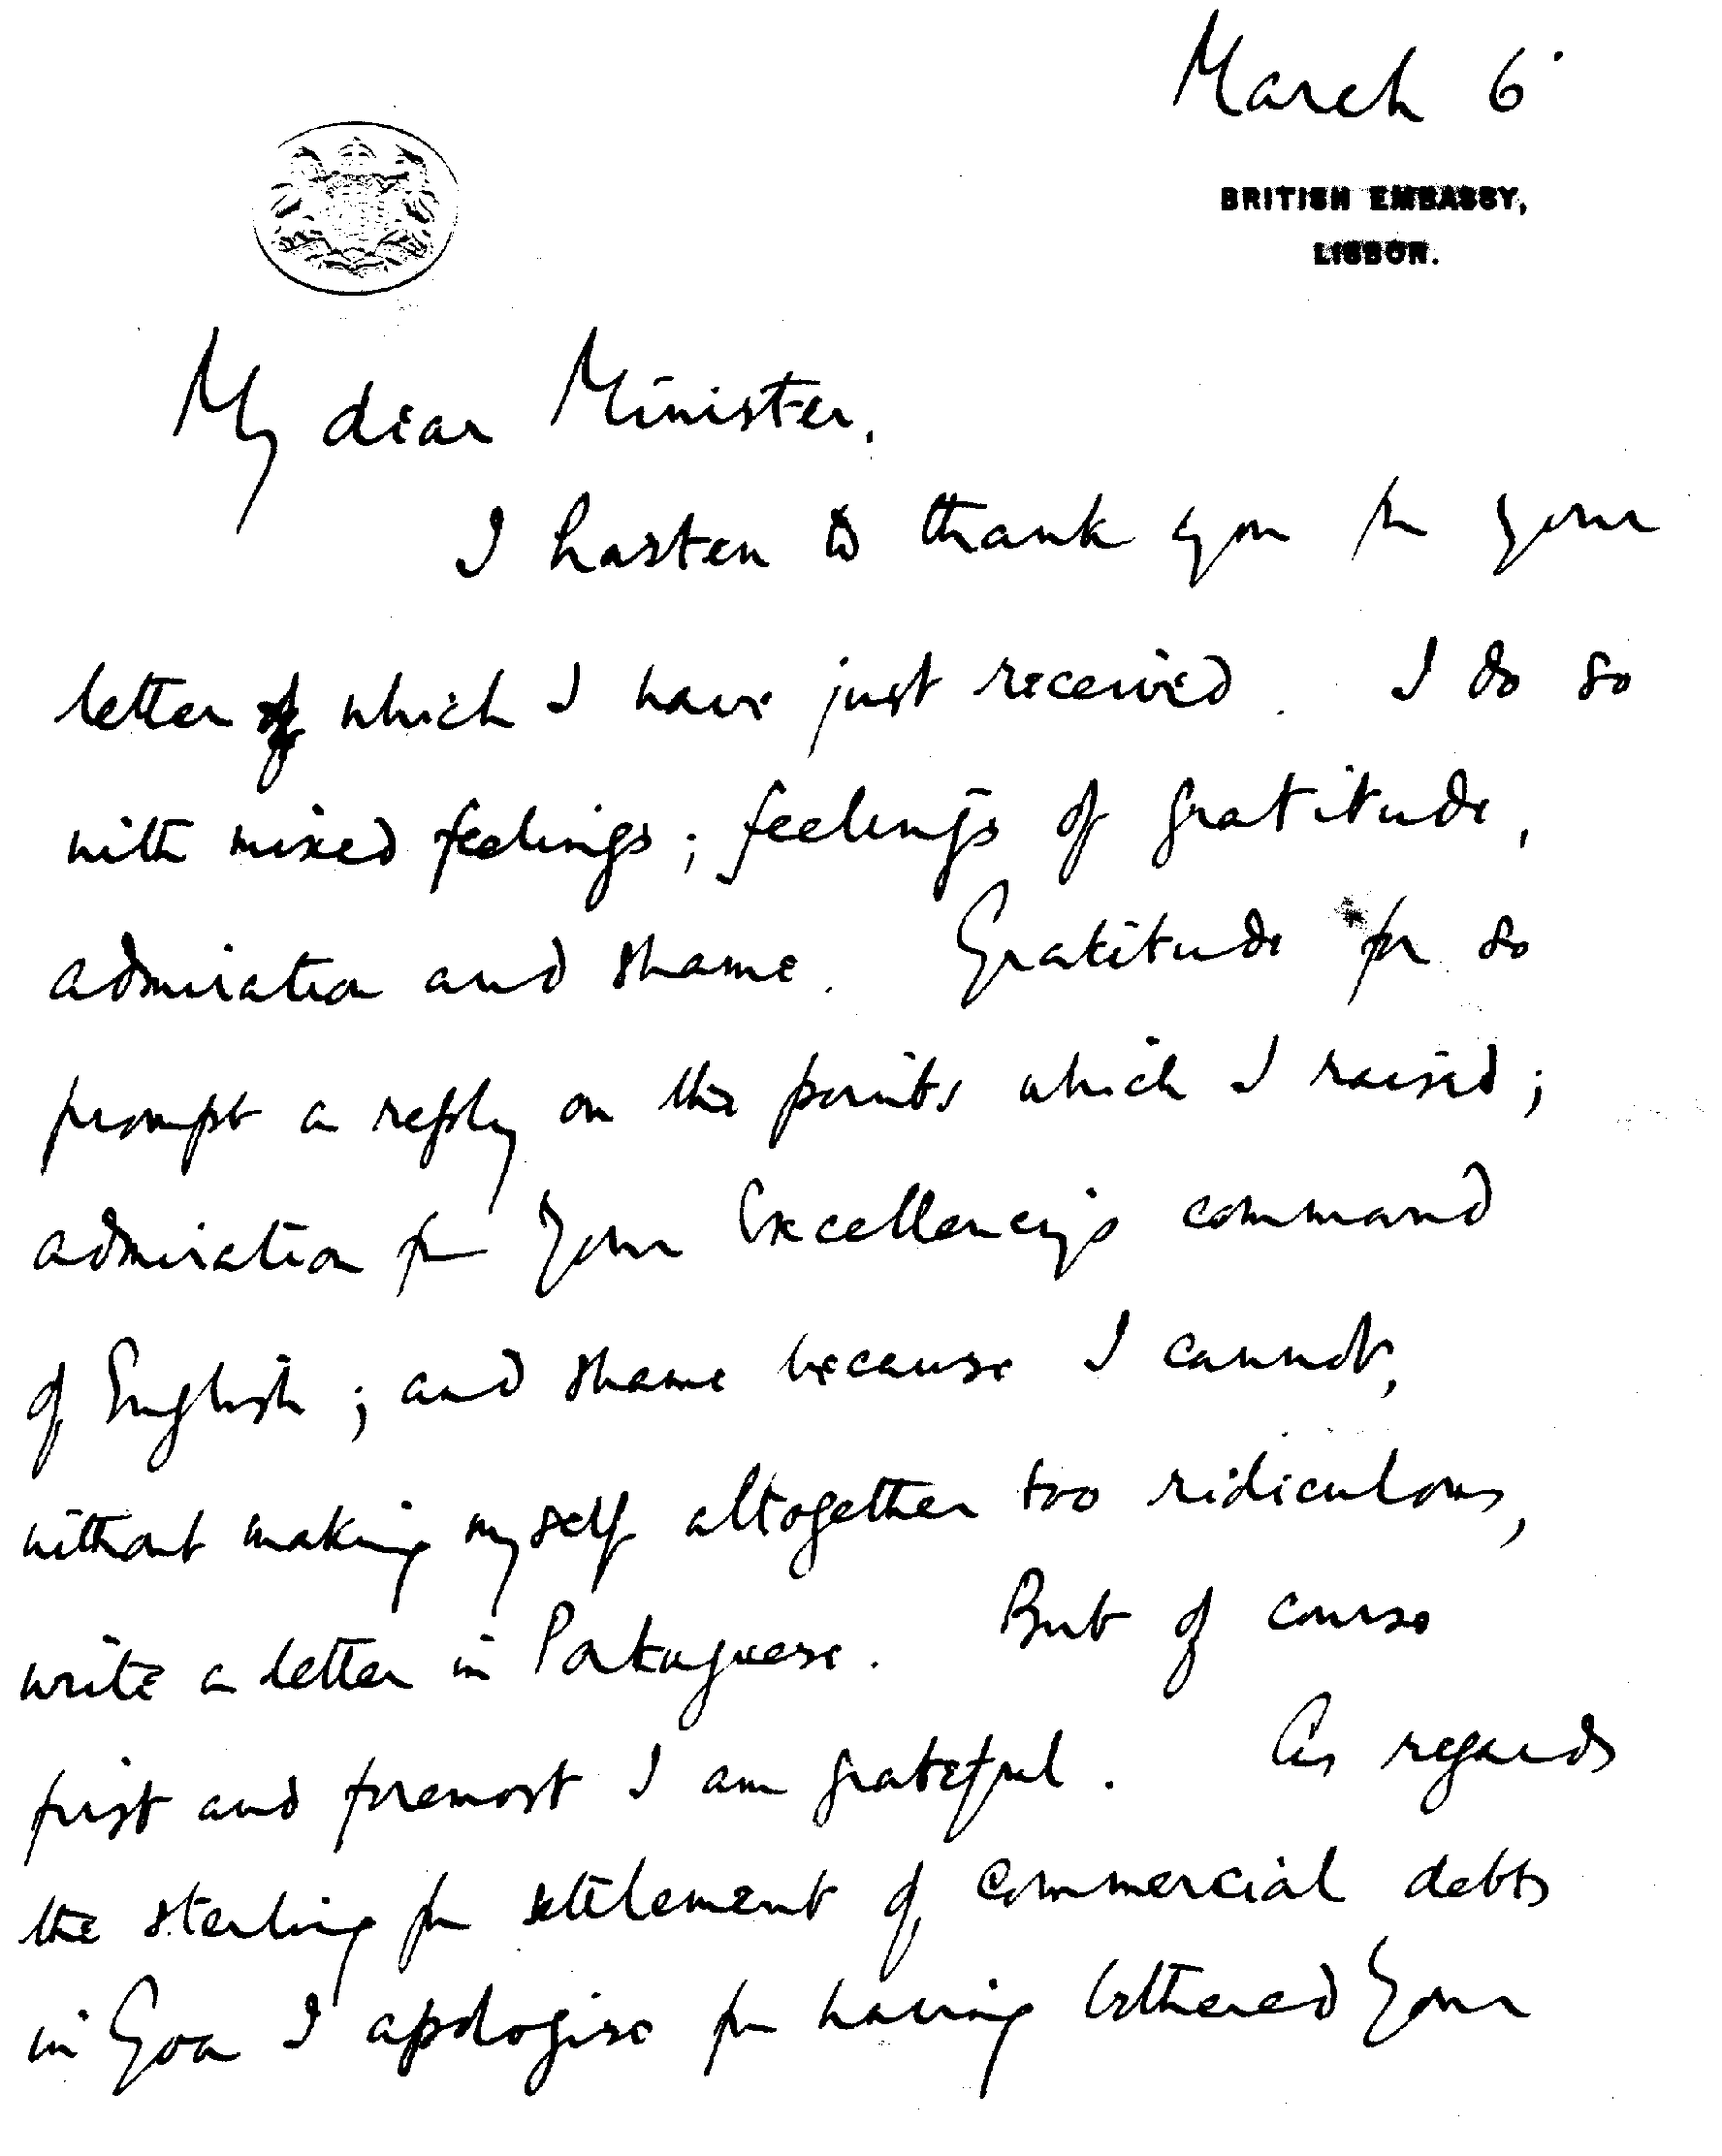 March 6.
BRITISH EMBASSY,
LISBON.
My dear Minister,
I hasten to thank you for your
letter of which I have just received. I do so
with mixed feelings; feelings of gratitude,
admiration and shame. Gratitude for so
prompt a reply on the points which I raised;
admiration for Your Excellency's command
of English; and shame because I cannot,
without making myself altogether too ridiculous,
write a letter in Portuguese. But of course
first and foremost I am grateful. As regards
the sterling for settlement of commercial debts
in Goa I apologise for having bothered Your